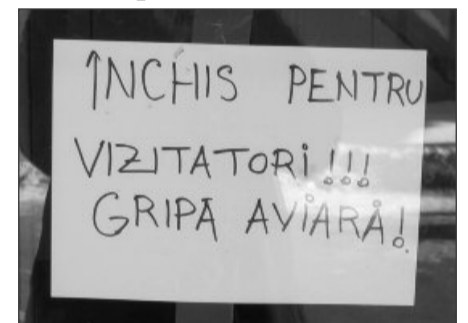 ÎNCHIS PENTRU
VIZITATORI!!!
GRIPĂ AVIARĂ!